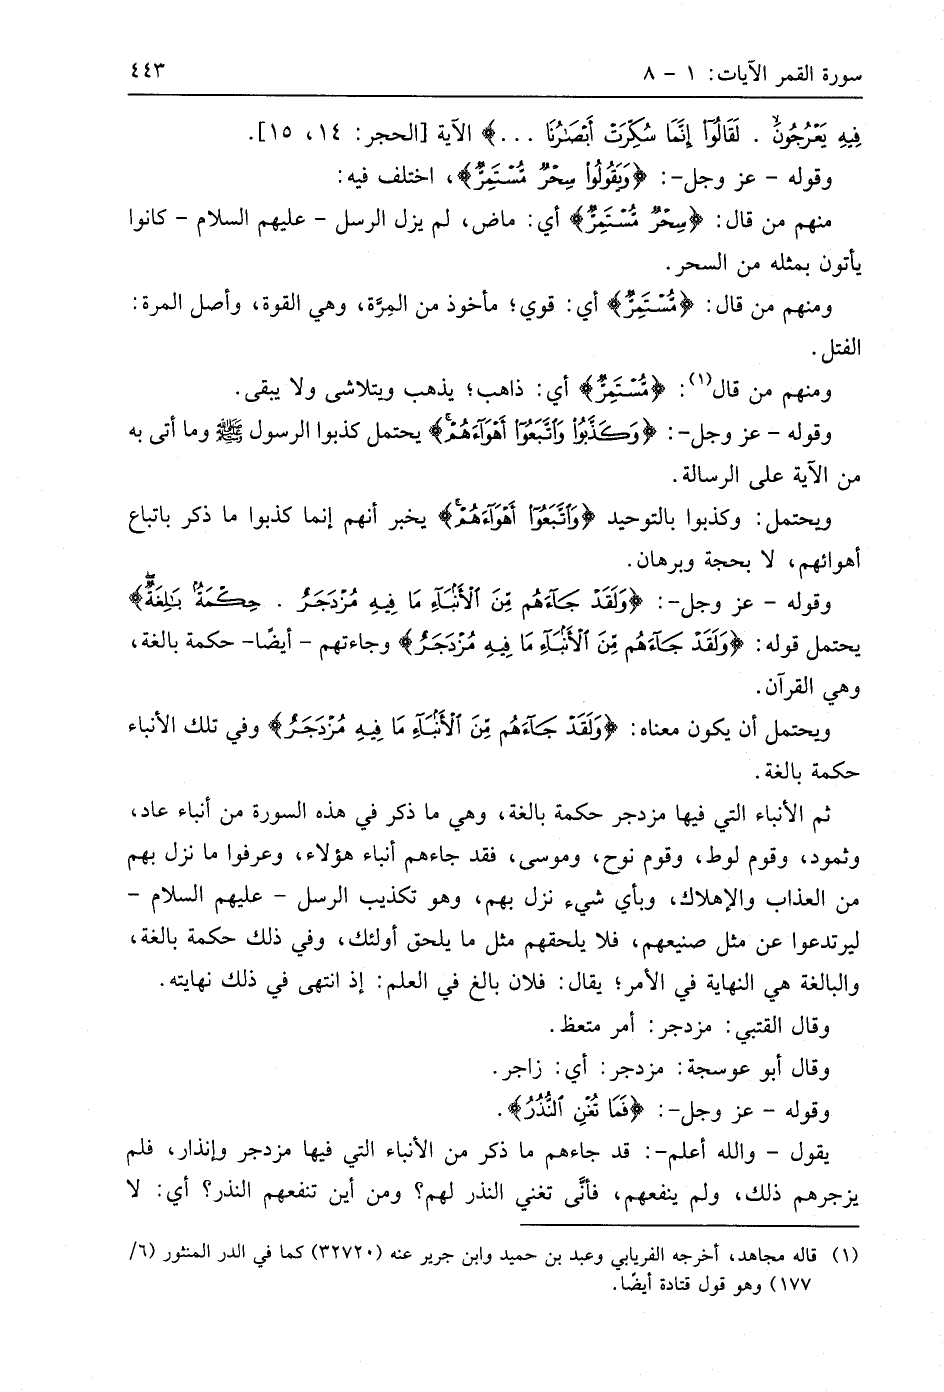 سورة القمر الآيات: ١ - ٨ ٤٤٣
فِيهِ يَعْرُجُونَ . لَقَالُوٓا۟ إِنَّمَا سُكِّرَتْ أَبْصَـٰرُنَا ...﴾ الآية [الحجر: ١٤، ١٥].
وقوله - عز وجل-: ﴿وَيَقُولُوا۟ سِحْرٌ مُّسْتَمِرٌّ﴾، اختلف فيه:
منهم من قال: ﴿سِحْرٌ مُّسْتَمِرٌّ﴾ أي: ماض، لم يزل الرسل - عليهم السلام - كانوا
يأتون بمثله من السحر.
ومنهم من قال: ﴿مُّسْتَمِرٌّ﴾ أي: قوي؛ مأخوذ من المِرَّة، وهي القوة، وأصل المرة:
الفتل.
ومنهم من قال(١): ﴿مُّسْتَمِرٌّ﴾ أي: ذاهب؛ يذهب ويتلاشى ولا يبقى.
وقوله - عز وجل-: ﴿وَكَذَّبُوا۟ وَٱتَّبَعُوٓا۟ أَهْوَآءَهُمْۚ﴾ يحتمل كذبوا الرسول ﷺ وما أتى به
من الآية على الرسالة.
ويحتمل: وكذبوا بالتوحيد ﴿وَٱتَّبَعُوٓا۟ أَهْوَآءَهُمْۚ﴾ يخبر أنهم إنما كذبوا ما ذكر باتباع
أهوائهم، لا بحجة وبرهان.
وقوله - عز وجل-: ﴿وَلَقَدْ جَآءَهُم مِّنَ ٱلْأَنۢبَآءِ مَا فِيهِ مُزْدَجَرٌ . حِكْمَةٌۢ بَـٰلِغَةٌۖ﴾
يحتمل قوله: ﴿وَلَقَدْ جَآءَهُم مِّنَ ٱلْأَنۢبَآءِ مَا فِيهِ مُزْدَجَرٌ﴾ وجاءتهم - أيضًا- حكمة بالغة،
وهي القرآن.
ويحتمل أن يكون معناه: ﴿وَلَقَدْ جَآءَهُم مِّنَ ٱلْأَنۢبَآءِ مَا فِيهِ مُزْدَجَرٌ﴾ وفي تلك الأنباء
حكمة بالغة.
ثم الأنباء التي فيها مزدجر حكمة بالغة، وهي ما ذكر في هذه السورة من أنباء عاد،
وثمود، وقوم لوط، وقوم نوح، وموسى، فقد جاءهم أنباء هؤلاء، وعرفوا ما نزل بهم
من العذاب والإهلاك، وبأي شيء نزل بهم، وهو تكذيب الرسل - عليهم السلام -
ليرتدعوا عن مثل صنيعهم، فلا يلحقهم مثل ما يلحق أولئك، وفي ذلك حكمة بالغة،
والبالغة هي النهاية في الأمر؛ يقال: فلان بالغ في العلم: إذ انتهى في ذلك نهايته.
وقال القتبي: مزدجر: أمر متعظ.
وقال أبو عوسجة: مزدجر: أي: زاجر.
وقوله - عز وجل-: ﴿فَمَا تُغْنِ ٱلنُّذُرُ﴾.
يقول - والله أعلم-: قد جاءهم ما ذكر من الأنباء التي فيها مزدجر وإنذار، فلم
يزجرهم ذلك، ولم ينفعهم، فأنَّى تغني النذر لهم؟ ومن أين تنفعهم النذر؟ أي: لا
(١) قاله مجاهد، أخرجه الفريابي وعبد بن حميد وابن جرير عنه (٣٢٧٢٠) كما في الدر المنثور (٦/
١٧٧) وهو قول قتادة أيضًا.